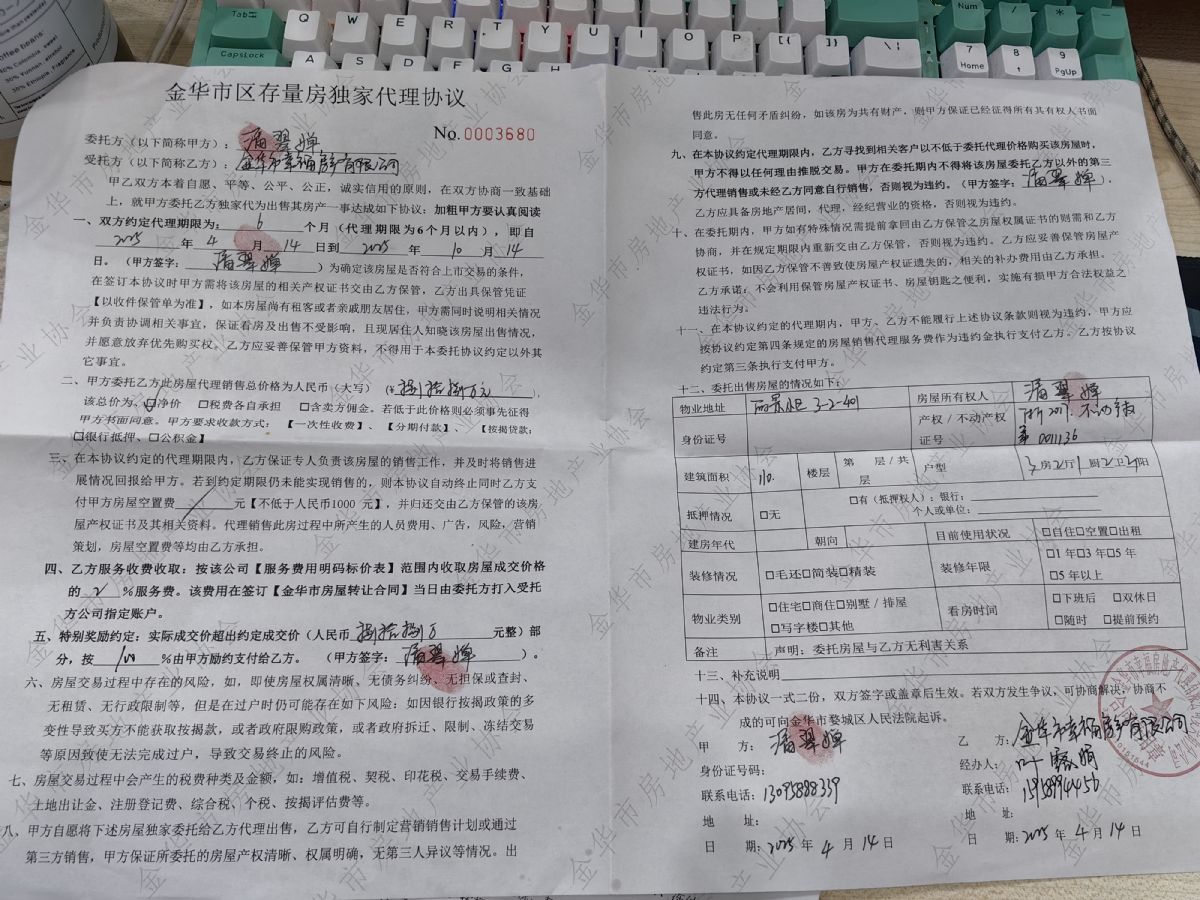 Tab
Q W E R T Y U I O P [{ ]} \|
Num / * -
CapsLock
A S D F G H
7 Home
8
9 PgUp
offee beans:
金华市区存量房独家代理协议
No.0003680
委托方（以下简称甲方）：潘翠婵
受托方（以下简称乙方）：金华市幸福房产有限公司
甲乙双方本着自愿、平等、公平、公正，诚实信用的原则，在双方协商一致基础
上，就甲方委托乙方独家代为出售其房产一事达成如下协议：加粗甲方要认真阅读
一、双方约定代理期限为：6个月（代理期限为6个月以内），即自
2025年4月14日到2025年10月14
日。（甲方签字：潘翠婵）为确定该房屋是否符合上市交易的条件，
在签订本协议时甲方需将该房屋的相关产权证书交由乙方保管，乙方出具保管凭证
【以收件保管单为准】，如本房屋尚有租客或者亲戚朋友居住，甲方需同时说明相关情况
并负责协调相关事宜，保证看房及出售不受影响，且现居住人知晓该房屋出售情况，
并愿意放弃优先购买权。乙方应妥善保管甲方资料，不得用于本委托协议约定以外其
它事宜。
二、甲方委托乙方此房屋代理销售总价格为人民币（大写）（¥捌拾捌万元），
该总价为、☑净价 □税费各自承担 □含卖方佣金。若低于此价格则必须事先征得
甲方书面同意。甲方要求收款方式：【一次性收费】、【分期付款】、【按揭贷款：
□银行抵押、□公积金】
三、在本协议约定的代理期限内，乙方保证专人负责该房屋的销售工作，并及时将销售进
展情况回报给甲方。若到约定期限仍未能实现销售的，则本协议自动终止同时乙方支
付甲方房屋空置费 / 元【不低于人民币1000 元】，并归还交由乙方保管的该房
屋产权证书及其相关资料。代理销售此房过程中所产生的人员费用、广告，风险，营销
策划，房屋空置费等均由乙方承担。
四、乙方服务收费收取：按该公司【服务费用明码标价表】范围内收取房屋成交价格
的2%服务费。该费用在签订【金华市房屋转让合同】当日由委托方打入受托
方公司指定账户。
五、特别奖励约定：实际成交价超出约定成交价（人民币捌拾捌万元整）部
分，按100%由甲方励约支付给乙方。（甲方签字：潘翠婵）。
六、房屋交易过程中存在的风险，如，即使房屋权属清晰、无债务纠纷、无担保或查封、
无租赁、无行政限制等，但是在过户时仍可能存在如下风险：如因银行按揭政策的多
变性导致买方不能获取按揭款，或者政府限购政策，或者政府拆迁、限制、冻结交易
等原因致使无法完成过户，导致交易终止的风险。
七、房屋交易过程中会产生的税费种类及金额，如：增值税、契税、印花税、交易手续费、
土地出让金、注册登记费、综合税、个税、按揭评估费等。
八、甲方自愿将下述房屋独家委托给乙方代理出售，乙方可自行制定营销销售计划或通过
第三方销售，甲方保证所委托的房屋产权清晰、权属明确，无第三人异议等情况。出
售此房无任何矛盾纠纷，如该房为共有财产，则甲方保证已经征得所有其有权人书面
同意。
九、在本协议约定代理期限内，乙方寻找到相关客户以不低于委托代理价格购买该房屋时，
甲方不得以任何理由推脱交易。甲方在委托期内不得将该房屋委托乙方以外的第三
方代理销售或未经乙方同意自行销售，否则视为违约。（甲方签字：潘翠婵）。
乙方应具备房地产居间，代理，经纪营业的资格，否则视为违约。
十、在委托期内，甲方如有特殊情况需提前拿回由乙方保管之房屋权属证书的则需和乙方
协商，并在规定期限内重新交由乙方保管，否则视为违约。乙方应妥善保管房屋产
权证书，如因乙方保管不善致使房屋产权证遗失的，相关的补办费用由乙方承担。
乙方承诺：不会利用保管房屋产权证书、房屋钥匙之便利，实施有损甲方合法权益之
违法行为。
十一、在本协议约定的代理期内，甲方、乙方不能履行上述协议条款则视为违约，甲方应
按协议约定第四条规定的房屋销售代理服务费作为违约金执行支付乙方。乙方按协议
约定第三条执行支付甲方。
十二、委托出售房屋的情况如下：
物业地址 丽景苑 3-2-401 房屋所有权人 潘翠婵
身份证号 产权/不动产权证号 浙 2017 001136
建筑面积 110. 楼层 第 层/共 层 户型 3房2厅1厨2卫2阳
抵押情况 □无 □有（抵押权人）：银行：
个人或单位：
建房年代 朝向 目前使用状况 □自住□空置□出租
装修情况 □毛还□简装□精装 装修年限 □1年□3年□5年
□5年以上
物业类别 □住宅□商住□别墅/排屋 □写字楼□其他 看房时间 □下班后 □双休日
□随时 □提前预约
备注 声明：委托房屋与乙方无利害关系
十三、补充说明
十四、本协议一式二份，双方签字或盖章后生效。若双方发生争议，可协商解决，协商不
成的可向金华市婺城区人民法院起诉。
甲 方：潘翠婵 乙 方：金华市幸福房产有限公司
身份证号码： 经办人：叶露娟
联系电话：13095888339 联系电话：15958994456
地 址： 地 址：
日 期：2025年4月14日 日 期：2025年4月14日
金华市房地产业协会